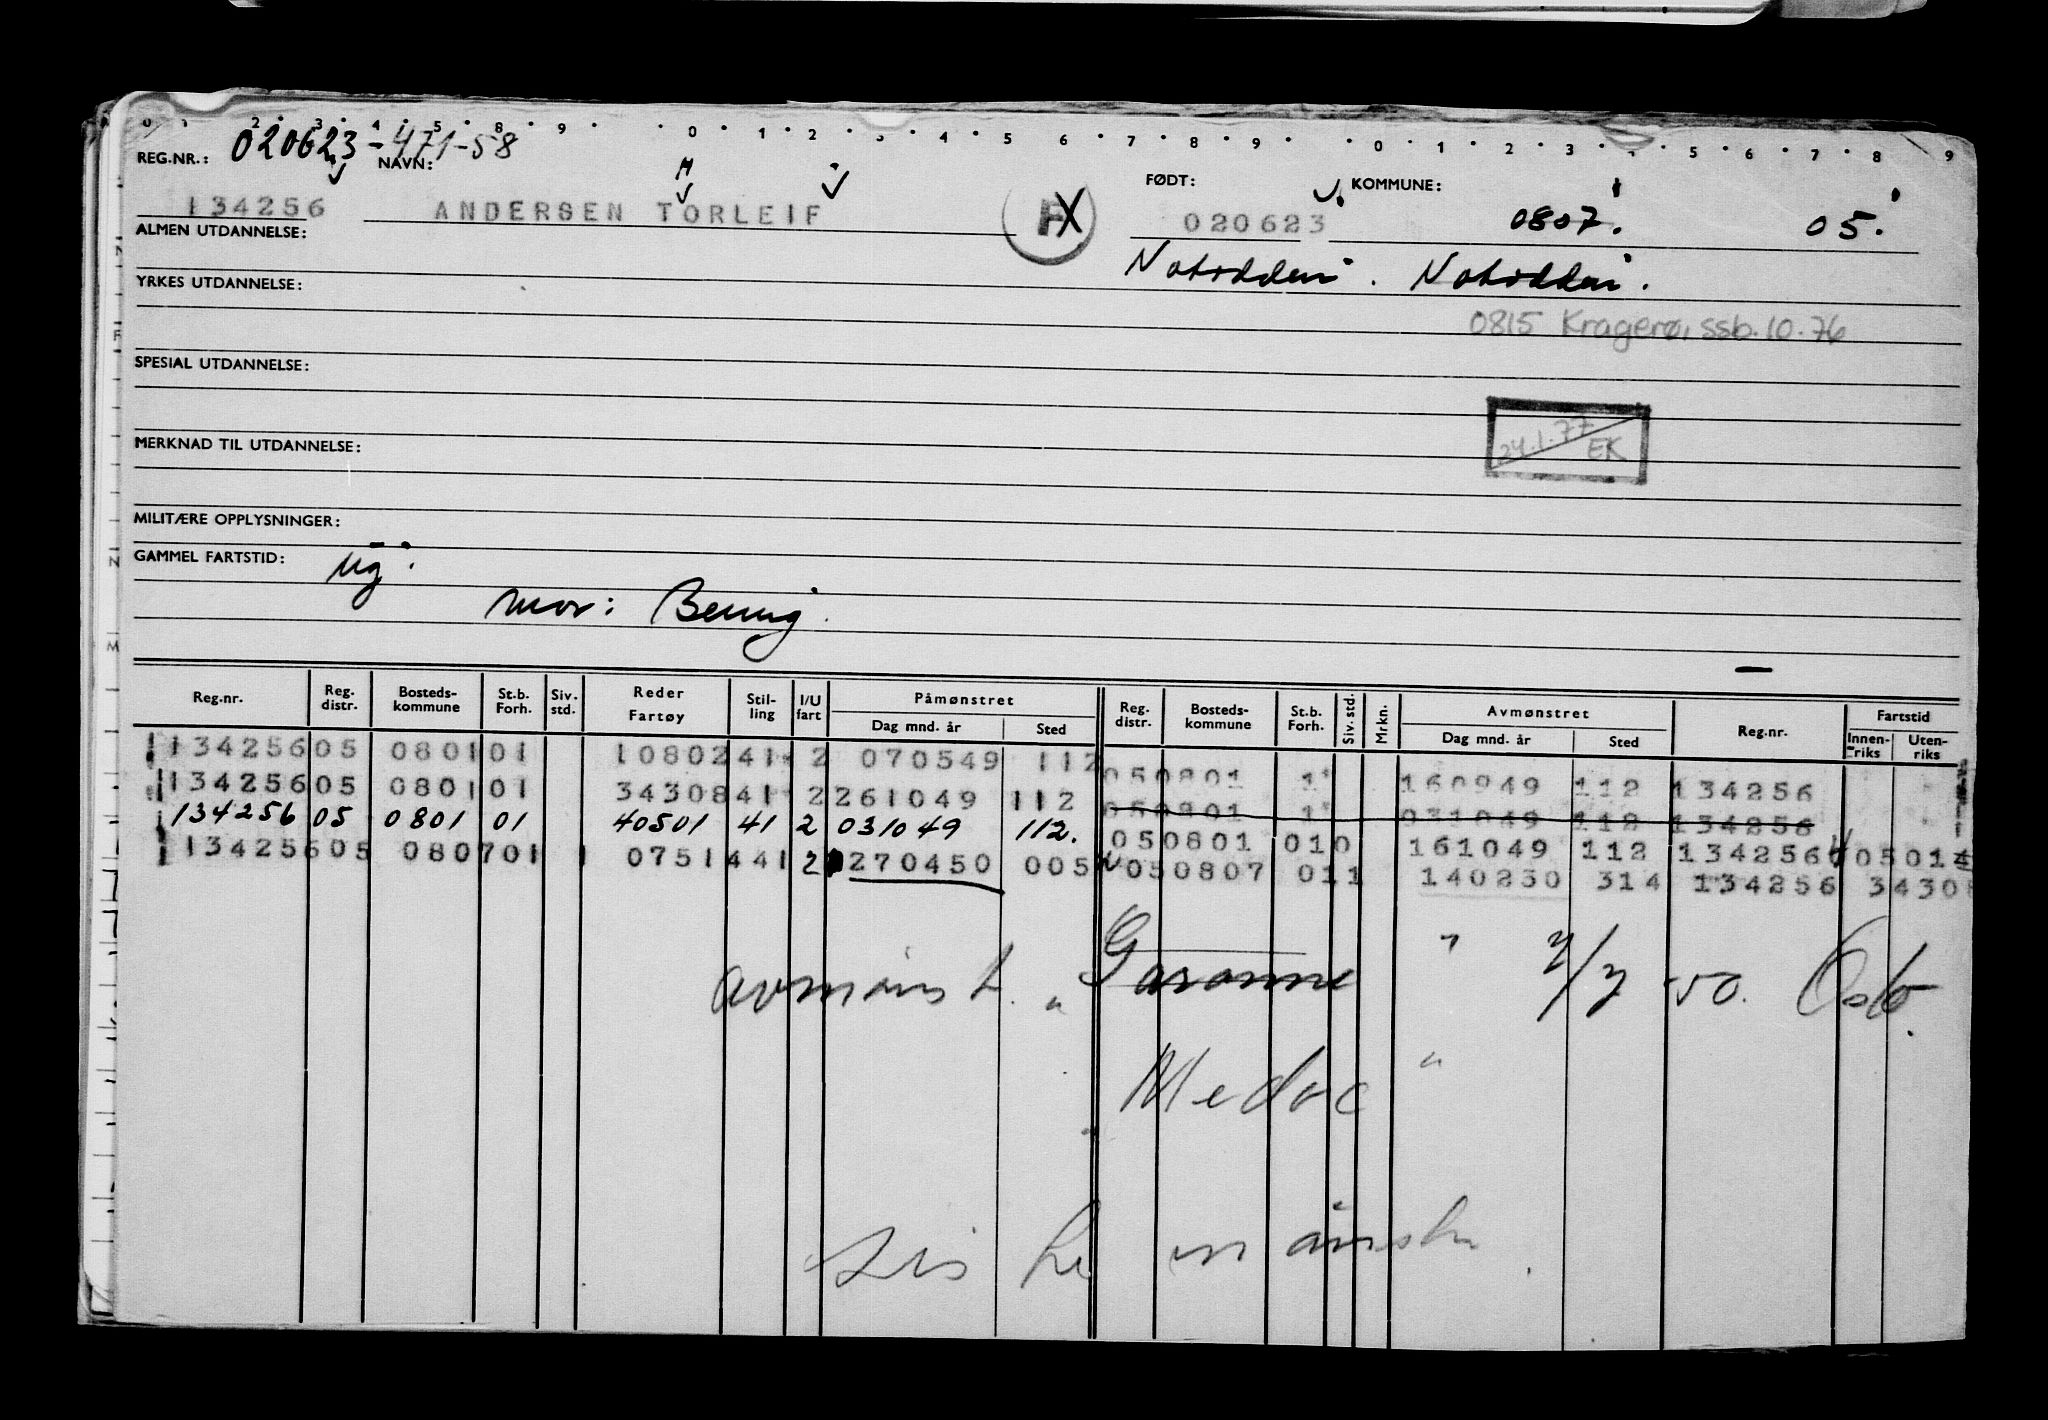 020623-471-58
REG.NR.: NAVN: FØDT: KOMMUNE:
134256 ANDERSEN TORLEIF FX 020623 0807. 05.
ALMEN UTDANNELSE:
Notodden. Notodden.
YRKES UTDANNELSE:
0815 Kragerø, ssb. 10.76
SPESIAL UTDANNELSE:
24.1.77 EK
MERKNAD TIL UTDANNELSE:
MILITÆRE OPPLYSNINGER:
GAMMEL FARTSTID: ug.
mor: Benny.
Reg.nr. Reg. distr. Bosteds-kommune St.b. Forh. Siv. std. Reder Fartøy Stil-ling I/U fart Påmønstret Dag mnd. år Sted Reg. distr. Bosteds-kommune St.b. Forh. Siv. std. Mrkn. Avmønstret Dag mnd. år Sted Reg.nr. Fartstid Innen-riks Uten-riks
134256 05 0801 01 10802 41 2 070549 112 050801 1 160949 112 134256
134256 05 0801 01 34308 41 2 261049 112 050801 1 031049 112 134256
134256 05 0801 01 40501 41 2 031049 112. 050801 010 161049 112 134256 05014
134256 05 0807 01 1 07514 41 2 270450 005 050807 011 140250 314 134256 3430
avmønst. " Garonne " 4/7 50. Oslo.
Medoc "